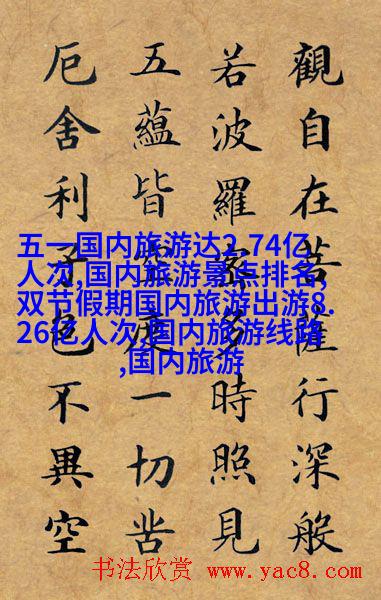 觀自在菩薩行深般
若波羅蜜多時照見
五蘊皆空度一切苦
厄舍利子色不異空
五一国内旅游达2.74亿
人次,国内旅游景点排名,
双节假期国内旅游出游8.
26亿人次,国内旅游线路
,国内旅游
书法欣赏 www.yac8.com